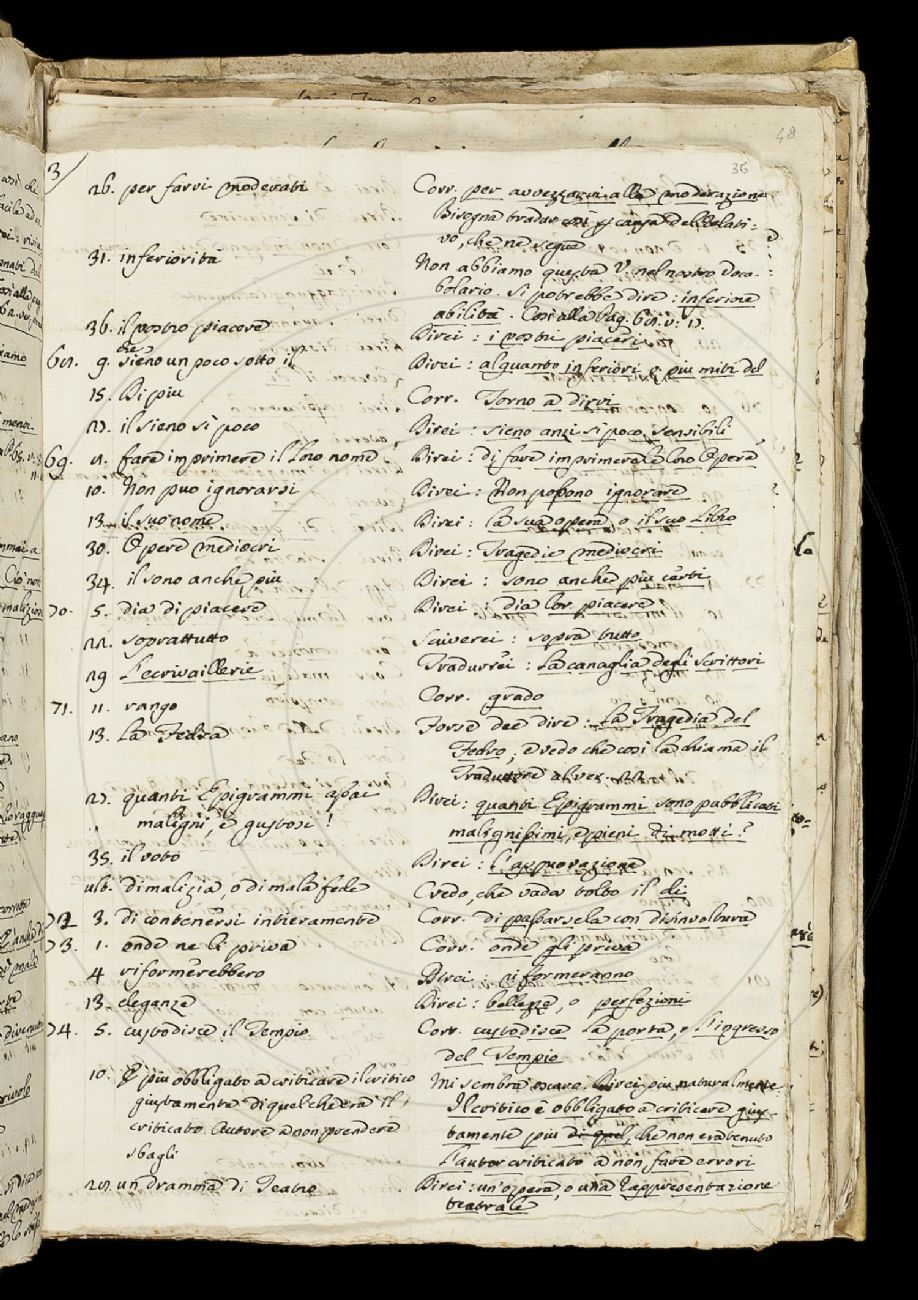 48
36
3/
26. per farvi moderati Corr. per avvezzarvi alla moderazione
Bisogna badar così per causa dell'Relati-
vo, che ne segue
31. inferiorita Non abbiamo questa V. nel nostro Voca-
bolario. Si potrebbe dire: inferiore
abilità. Così alla Pag.
36. il vostro piacere Direi: i vostri piaceri
che
9. sieno un poco sotto il Direi: alquanto inferiori e piu miti del
15. Di piu Corr. Torno a dirvi
27. il sieno si poco Direi: sieno anzi si poco sensibili
69. 2. fare imprimere il loro nome Direi: di fare imprimere le loro Opere
10. Non puo ignorarsi Direi: Non possono ignorare
13. il suo nome Direi: la sua opera, o il suo Libro
30. Opere mediocri Direi: Tragedie mediocri
34. il sono anche piu Direi: sono anche piu
70. 5. dia di piacere Direi: dia lor piacere
22. soprattutto Scriverei: sopra tutto
29 L'ecrivaillerie Tradurrei: La canaglia degli Scrittori
71. 11. rango Corr. grado
13. La Fedra Forse dee dire: La Tragedia del
Fedro, e vedo che così la chiama il
Traduttore
27. quanti Epigrammi assai Direi: quanti Epigrammi sono pubblicati
maligni, e gustosi! malignissimi, e pieni di motti?
35. il voto Direi: l'approvazione
ult. di malizia, o di mala fede Credo, che vada tolto il di
72 3. di contenersi intieramente Corr. di passarsela con disinvoltura
73. 1. onde ne li priva Corr. onde gli priva
4 riformerebbero Direi: riformeranno
13. eleganze Direi: bellezze, o perfezioni
74. 5. custodisce il Tempio Corr. custodisce la porta, o l'ingresso
del Tempio
10. È piu obbligato a criticare il critico Mi sembra oscuro. Direi piu naturalmente
giustamente di quel che era il Il critico è obbligato a criticare gius-
criticato Autore a non prendere tamente piu di quel, che non era tenuto
sbagli l'autor criticato a non fare errori
un dramma di Teatro Direi: un'opera, o una Rappresentazione
teatrale